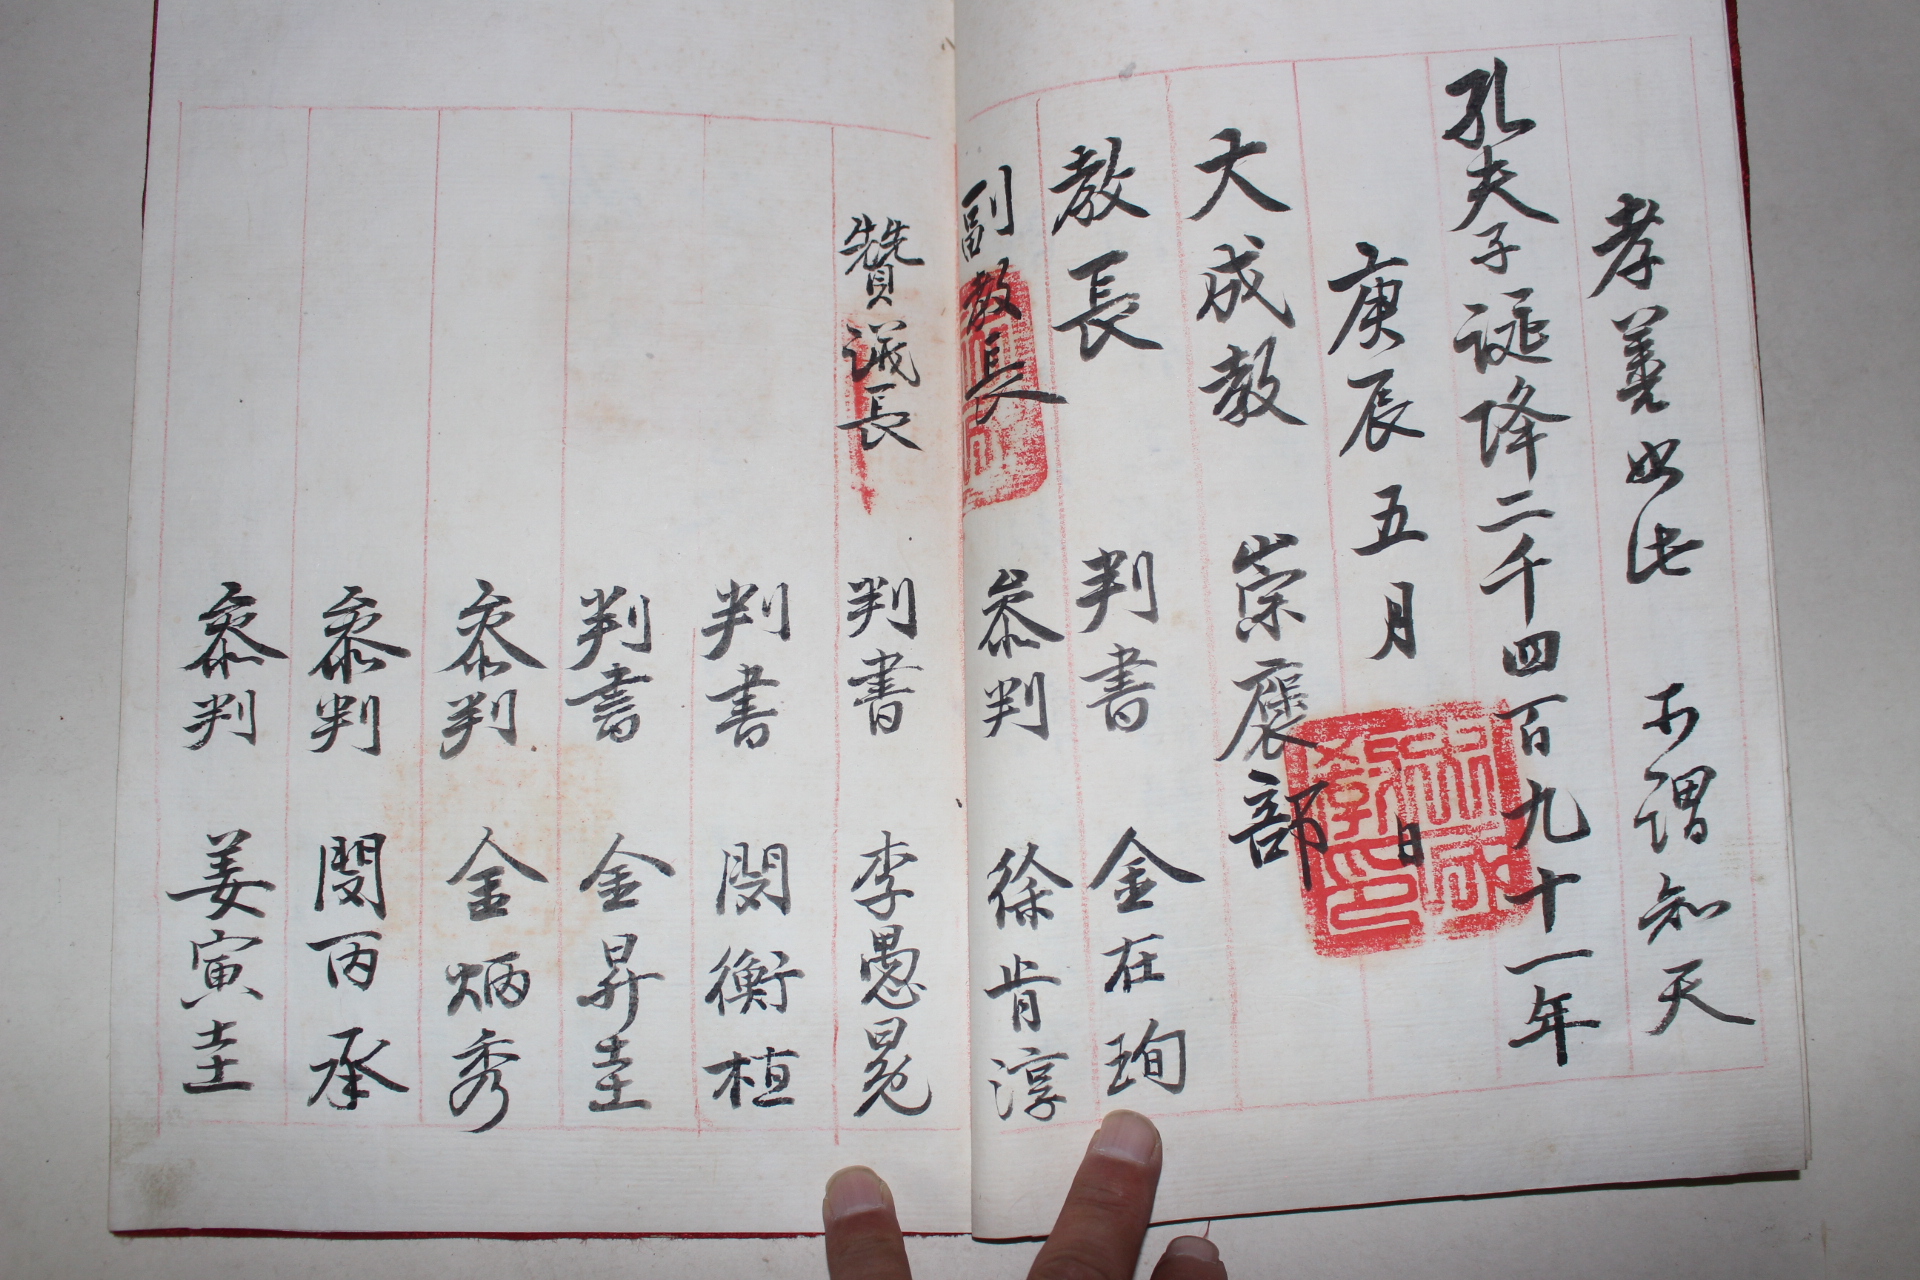 孝善如此 不謂知天
孔夫子誕降二千四百九十一年
庚辰五月 日
大成教 崇褒部
教長 判書 金在珣
副教長 参判 徐肯淳
贊議長 判書 李愚冕
判書 閔衡植
判書 金昇圭
参判 金炳秀
参判 閔丙承
参判 姜寅圭
大成
教印